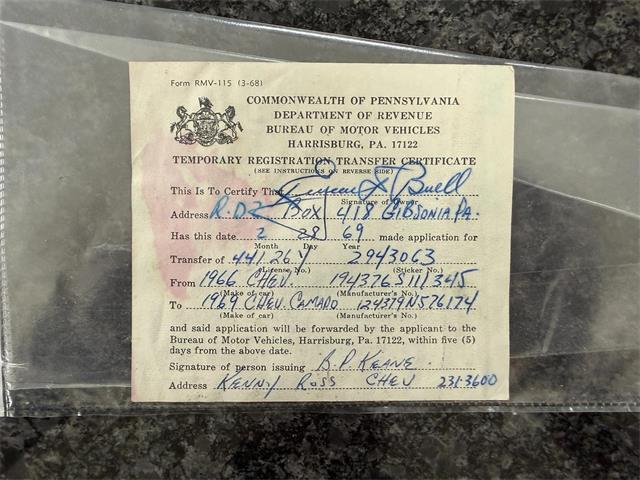 Form RMV-115 (3-68)
COMMONWEALTH OF PENNSYLVANIA
DEPARTMENT OF REVENUE
BUREAU OF MOTOR VEHICLES
HARRISBURG, PA. 17122
TEMPORARY REGISTRATION TRANSFER CERTIFICATE
(SEE INSTRUCTIONS ON REVERSE SIDE)
This Is To Certify That Buell
Signature of Owner
Address R.D 2 BOX 418 GIBSONIA PA.
Has this date 2 28 69 made application for
Month Day Year
Transfer of 441.26Y 2943063
(License No.) (Sticker No.)
From 1966 CHEV. 194376S111345
(Make of car) (Manufacturer's No.)
To 1969 CHEV. CAMARO 124379N576174
(Make of car) (Manufacturer's No.)
and said application will be forwarded by the applicant to the
Bureau of Motor Vehicles, Harrisburg, Pa. 17122, within five (5)
days from the above date.
Signature of person issuing B.P KEANE
Address KENNY ROSS CHEV 231-3600